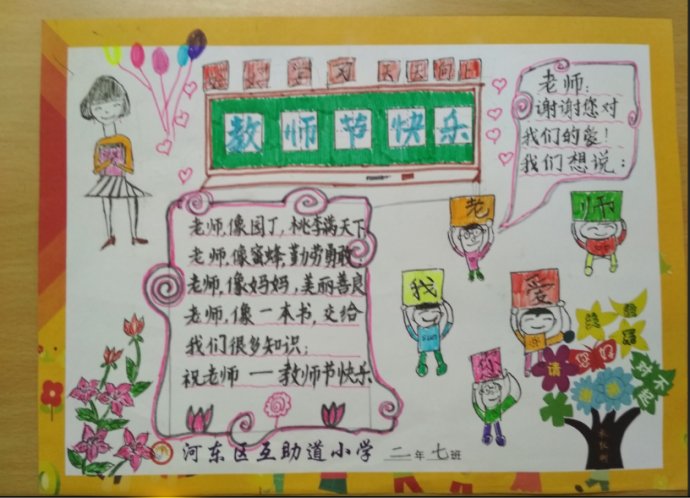 好好学习 天天向上
教师节快乐
老师：
谢谢您对
我们的爱！
我们想说：
老师
我爱
您
老师，像园丁，桃李满天下
老师，像蜜蜂，勤劳勇敢，
老师，像妈妈，美丽善良
老师，像一本书，交给
我们很多知识；
祝老师一教师节快乐
请
对不起
河东区互助道小学 二年七班